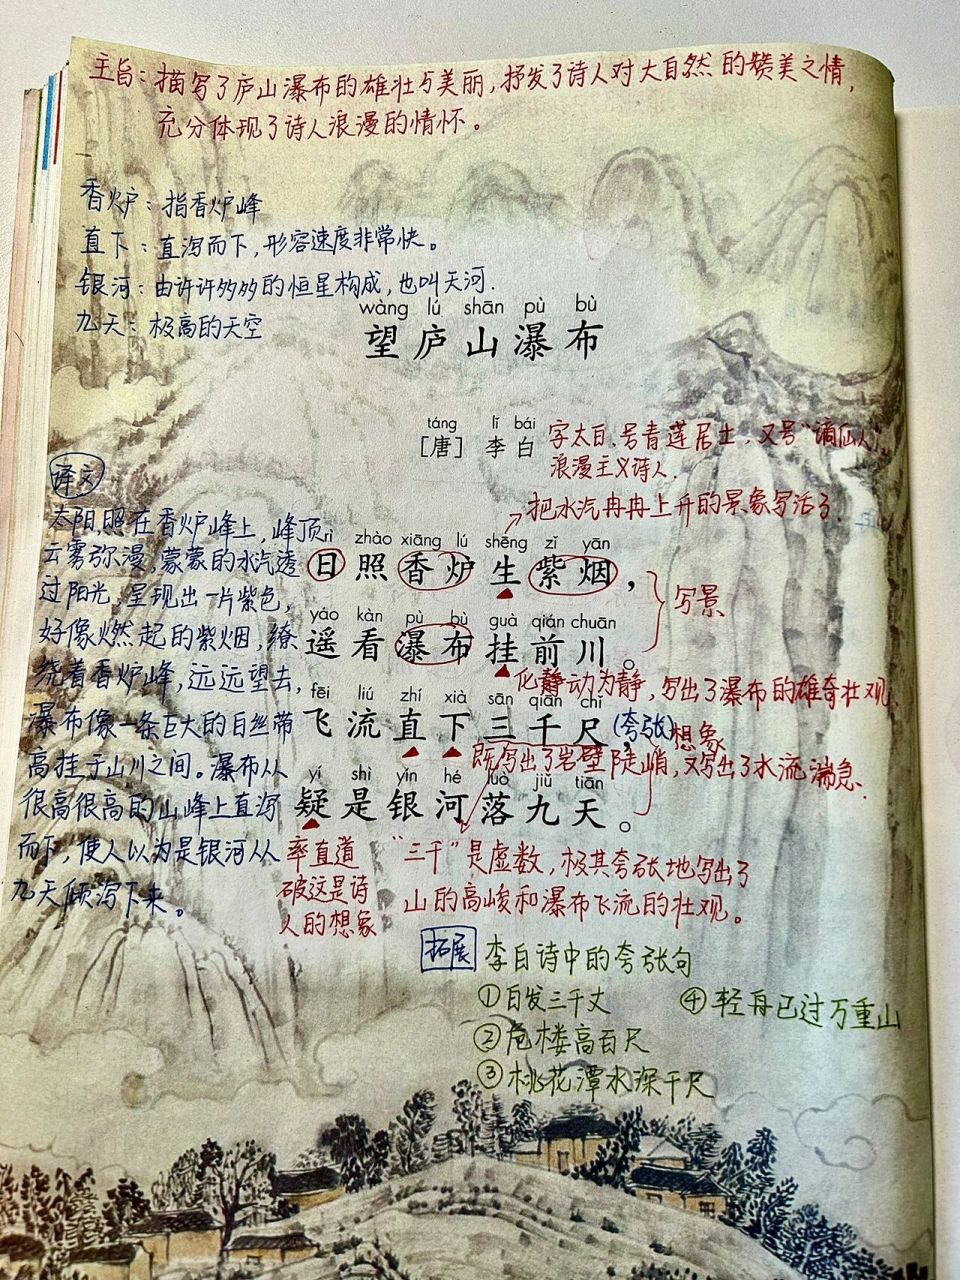 主旨：描写了庐山瀑布的雄壮与美丽，抒发了诗人对大自然的赞美之情，
充分体现了诗人浪漫的情怀。
香炉：指香炉峰
直下：直泻而下，形容速度非常快。
银河：由许许多多的恒星构成，也叫天河.
九天：极高的天空
wàng lú shān pù bù
望庐山瀑布
táng lǐ bái
［唐］李白
字太白、号青莲居士，又号“谪仙人”
浪漫主义诗人.
把水汽冉冉上升的景象写活了.
译文
太阳照在香炉峰上，峰顶
云雾弥漫，蒙蒙的水汽透
过阳光，呈现出一片紫色，
好像燃起的紫烟，缭
绕着香炉峰，远远望去，
瀑布像一条巨大的白丝带
高挂于山川之间。瀑布从
很高很高的山峰上直泻
而下，使人以为是银河从
九天倾泻下来。
rì zhào xiāng lú shēng zǐ yān
日照香炉生紫烟，
yáo kàn pù bù guà qián chuān
遥看瀑布挂前川。
写景
化静动为静，写出了瀑布的雄奇壮观
fēi liú zhí xià sān qiān chǐ
飞流直下三千尺，
(夸张)
想象
既写出了岩壁陡峭，又写出了水流湍急.
yí shì yín hé luò jiǔ tiān
疑是银河落九天。
率直道
破这是诗
人的想象
“三千”是虚数，极其夸张地写出了
山的高峻和瀑布飞流的壮观。
拓展 李白诗中的夸张句
①白发三千丈
④轻舟已过万重山
②危楼高百尺
③桃花潭水深千尺